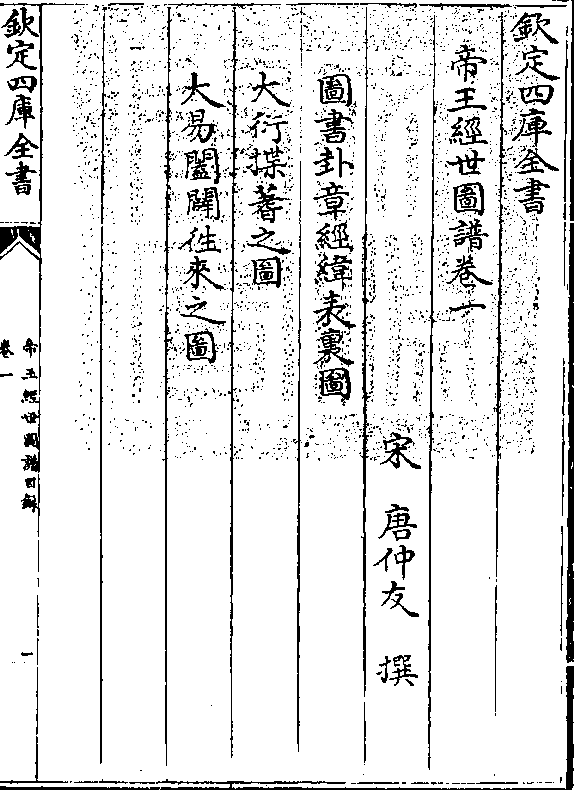 欽定四庫全書
帝王經世圖譜卷一
宋　唐仲友　撰
圖書卦章經緯表裏圖
大衍揲蓍之圖
大易闔闢徃來之圖
欽定四庫全書
帝王經世圖譜目録
卷一
一